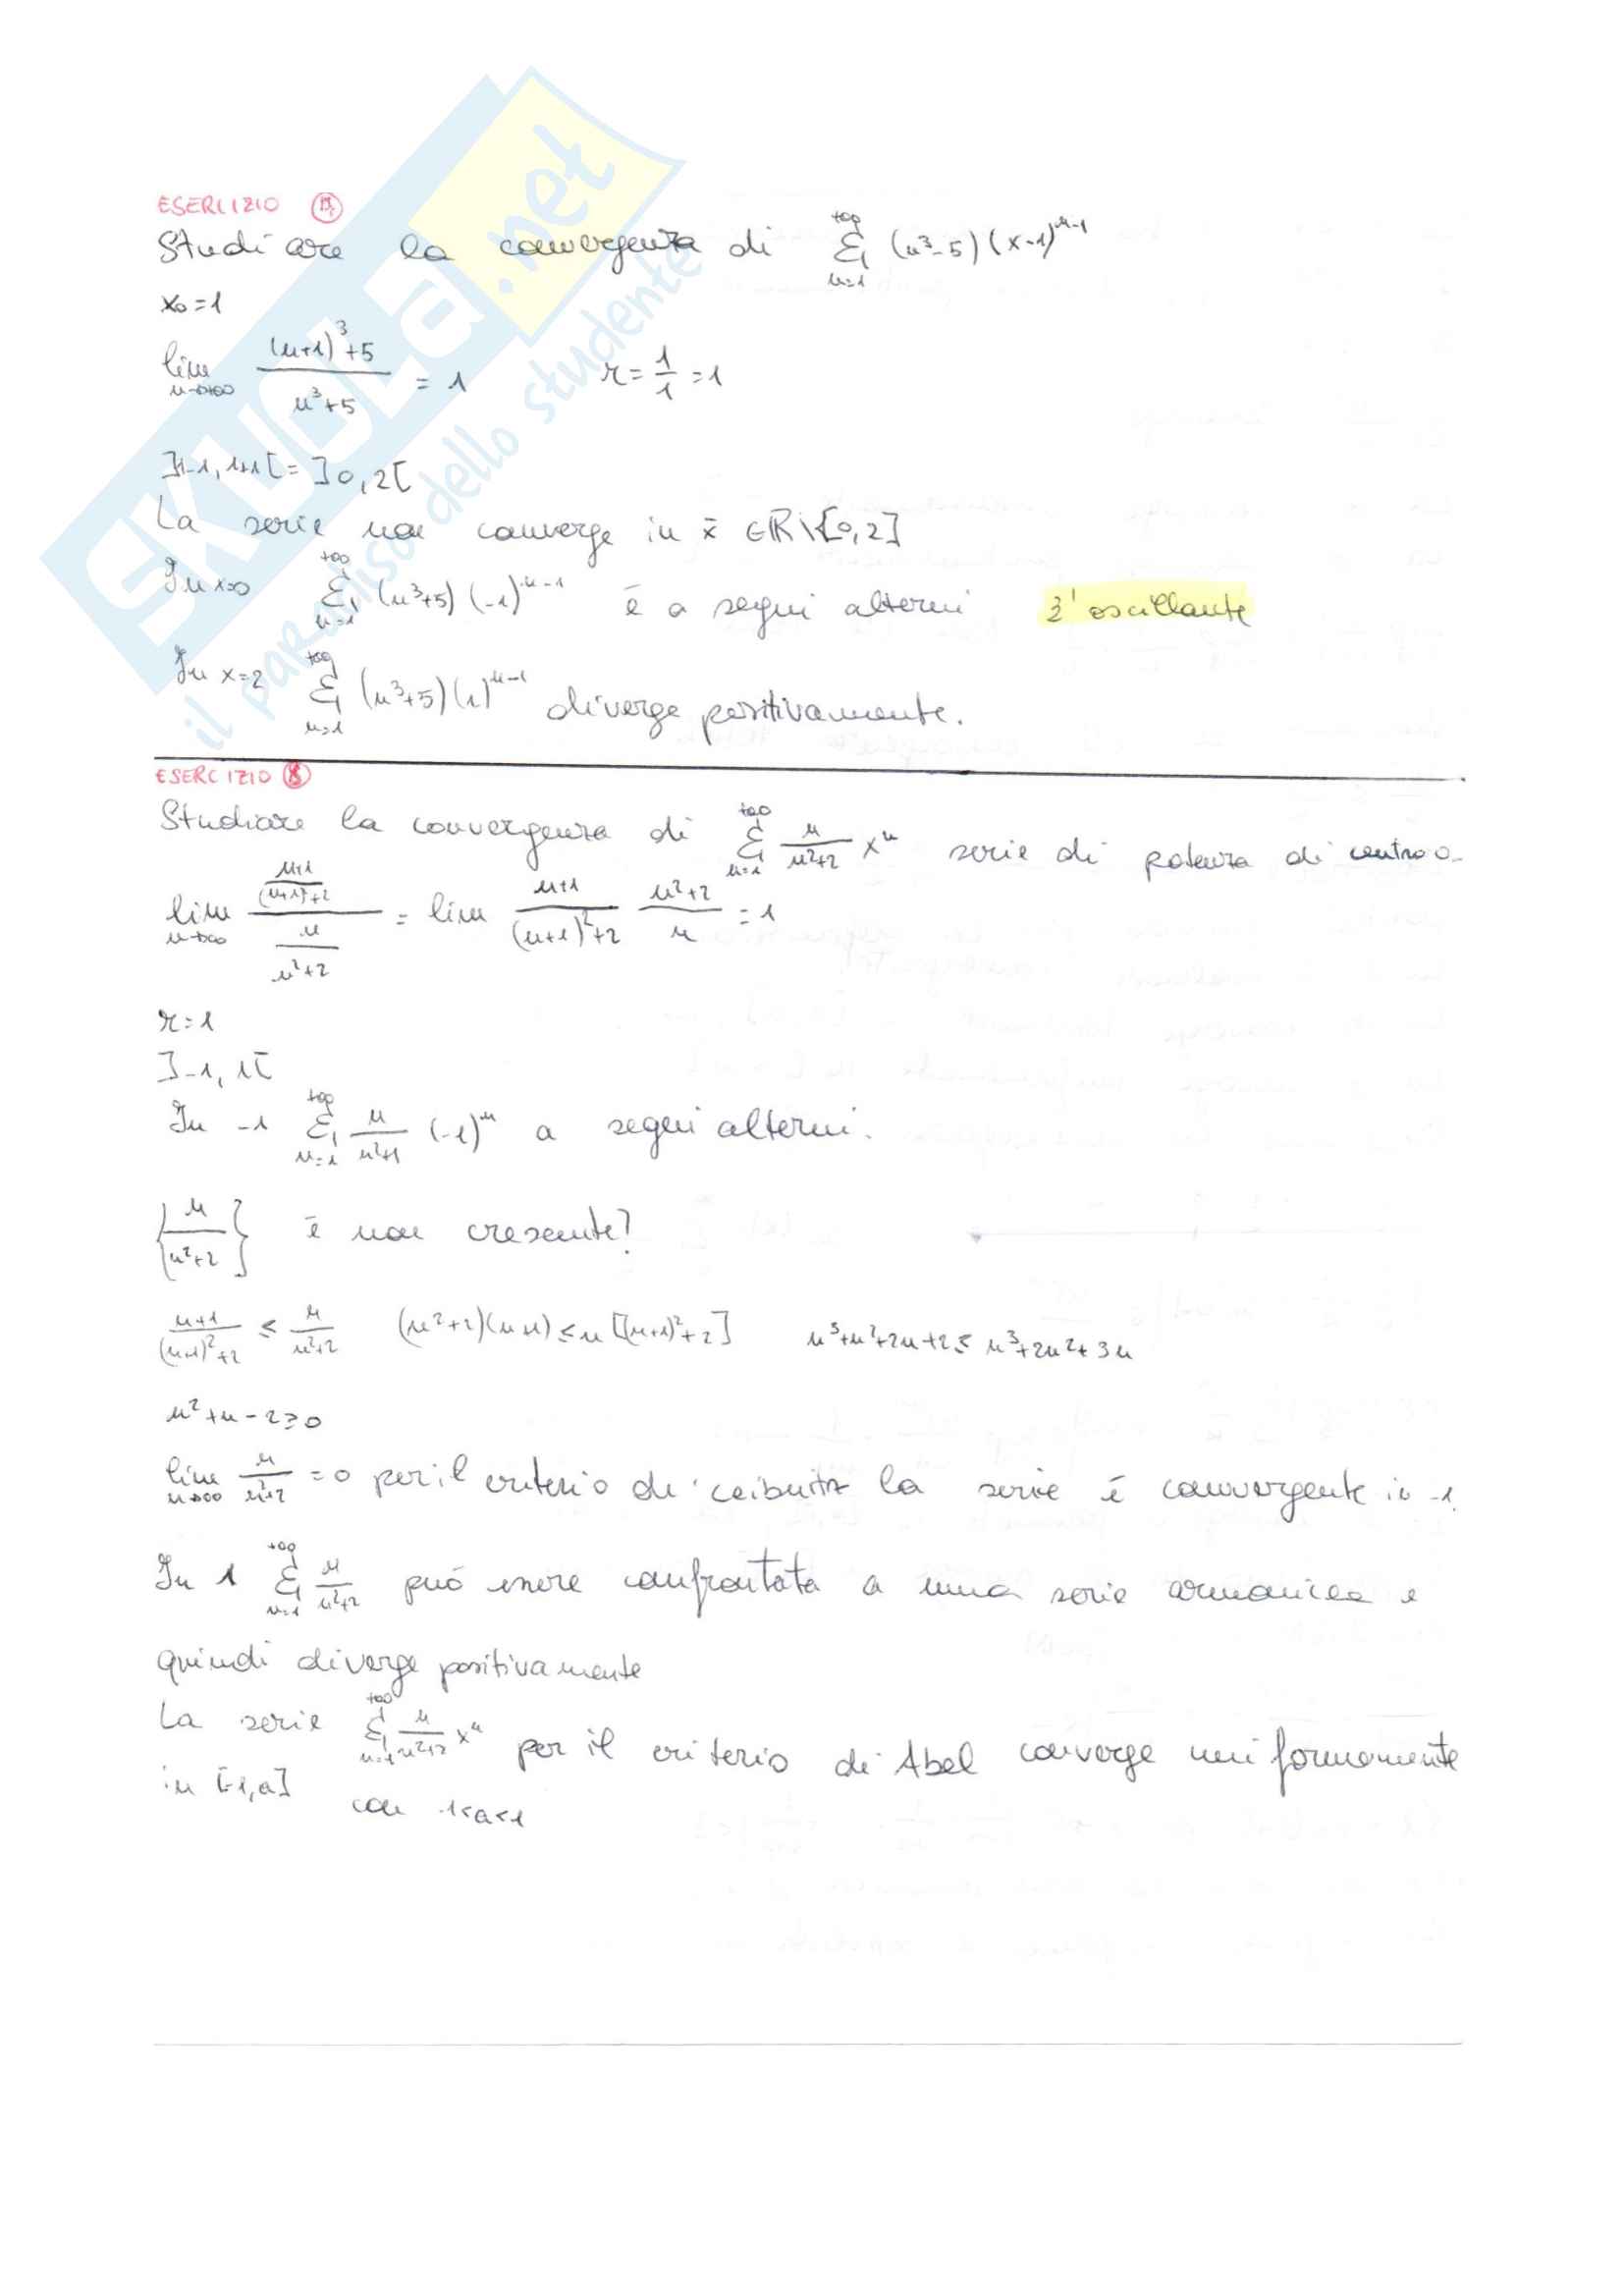 SKUOLA.net
il paradiso dello studente
ESERCIZIO
Studiare la convergenza di +∞ Σ n=1 (n³-5)(x-1)ⁿ⁻¹
x₀=1
lim n→+∞ (n+1)³+5 / n³+5 = 1 r = 1/1 = 1
]1-1, 1+1[ = ]0,2[
La serie non converge in x̄ ∈ℝ\[0,2]
In x=0 +∞ Σ n=1 (n³+5)(-1)ⁿ⁻¹ è a segni alterni È oscillante
In x=2 +∞ Σ n=1 (n³+5)(1)ⁿ⁻¹ diverge positivamente.
ESERCIZIO
Studiare la convergenza di +∞ Σ n=1 n/(n²+2) xⁿ serie di potenza di centro 0.
lim n→∞ ((n+1)/((n+1)²+2)) / (n/(n²+2)) = lim (n+1)/((n+1)²+2) (n²+2)/n = 1
r=1
]-1, 1[
In -1 +∞ Σ n=1 n/(n²+1) (-1)ⁿ a segni alterni.
{n/(n²+2)} è non crescente?
(n+1)/((n+1)²+2) ≤ n/(n²+2) (n²+2)(n+1) ≤ n[(n+1)²+2] n³+n²+2n+2 ≤ n³+2n²+3n
n²+n-2≥0
lim n→∞ n/(n²+2) = 0 per il criterio di Leibnitz la serie è convergente in -1.
In 1 +∞ Σ n=1 n/(n²+2) può essere confrontata a una serie armonica e
quindi diverge positivamente
La serie +∞ Σ n=1 n/(n²+2) xⁿ per il criterio di Abel converge uniformemente
in [-1,a] con -1<a<1